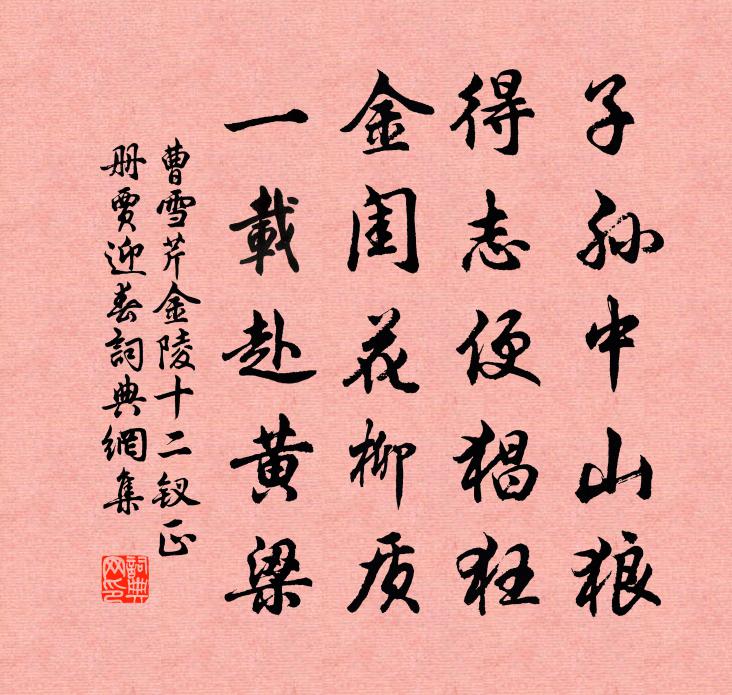 子孙中山狼
得志便猖狂
金闺花柳质
一載赴黄梁
曹雪芹金陵十二钗正
册贾迎春詞典網集
詞典
网印